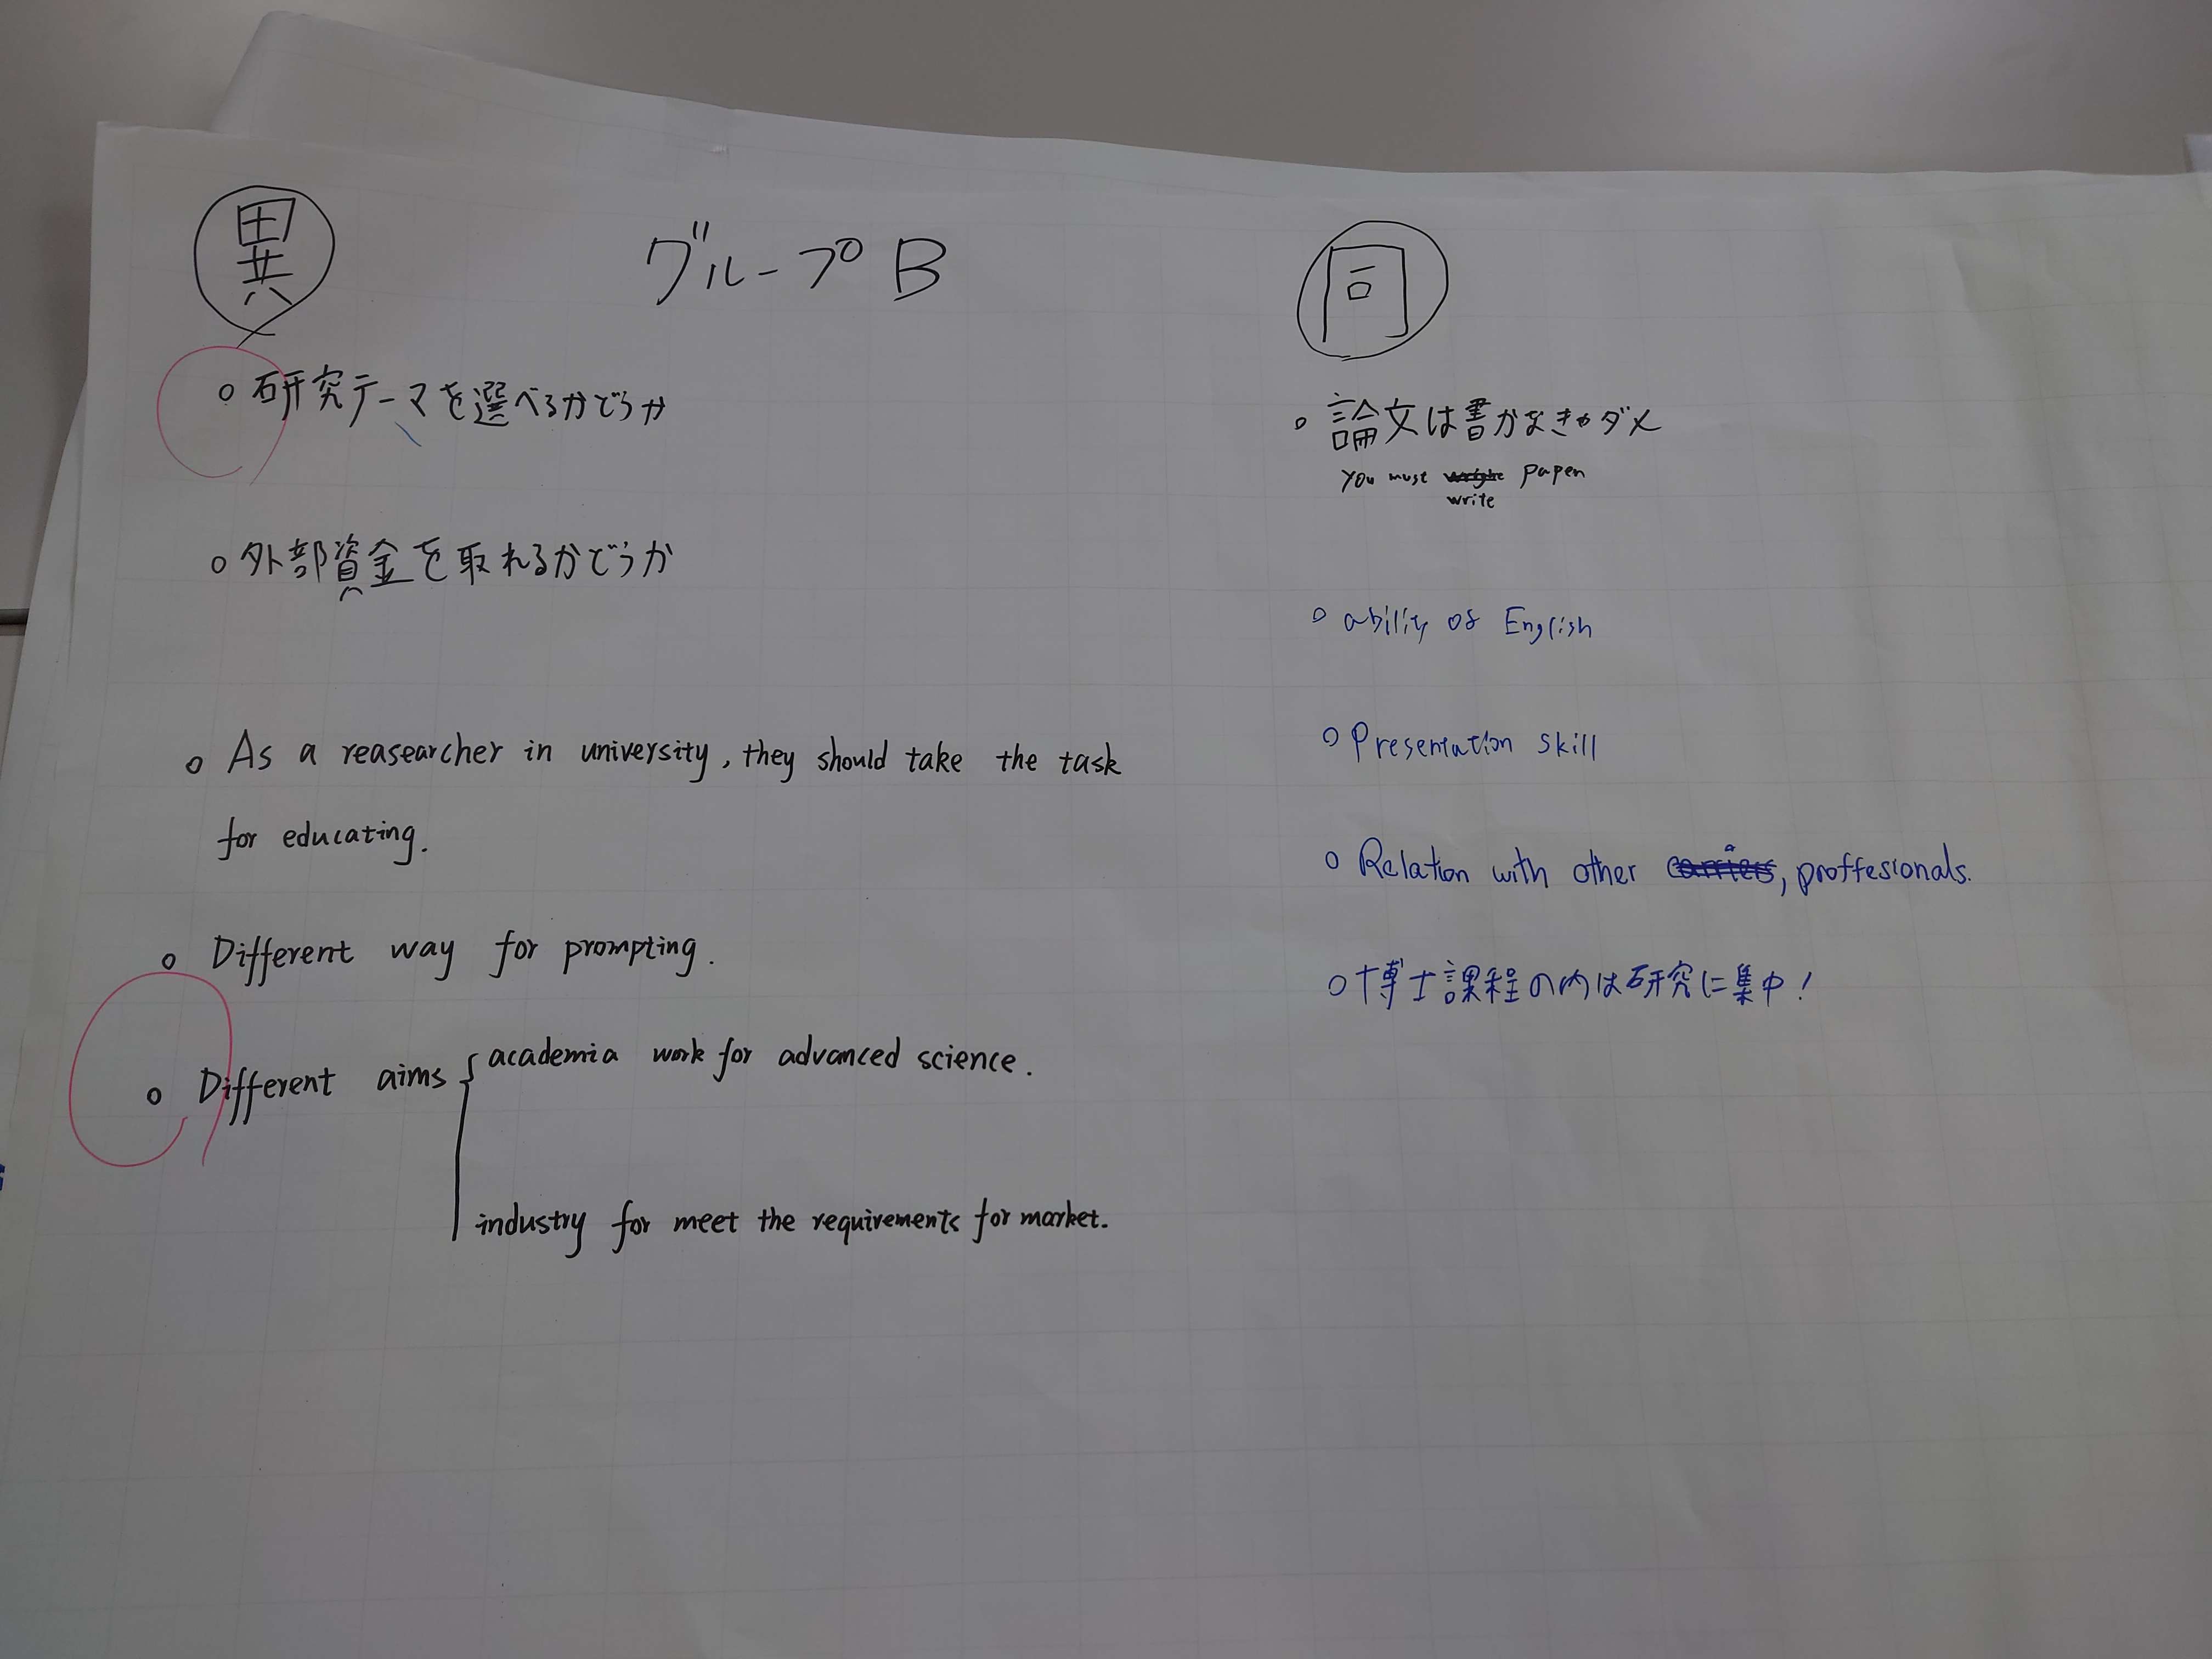 異
グループB
○ 研究テーマを選べるかどうか
○ 外部資金を取れるかどうか
○ As a reasearcher in university, they should take the task
for educating.
○ Different way for prompting.
○ Different aims { academia work for advanced science.
industry for meet the requirements for market.
同
○ 論文は書かなきゃダメ
You must paper
write
○ ability of English
○ Presentation skill
○ Relation with other , proffesionals.
○ 博士課程の内は研究に集中!